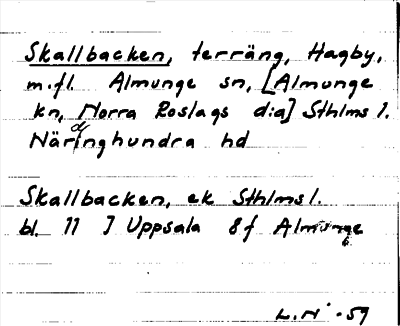 Skallbacken, terräng, Hagby,
m.fl. Almunge sn, [Almunge
kn, Norra Roslags d:a] Sthlms l.
Närdinghundra hd
Skallbacken, ek Sthlms l.
bl. 11 I Uppsala 8f Almunge
L.N. -59